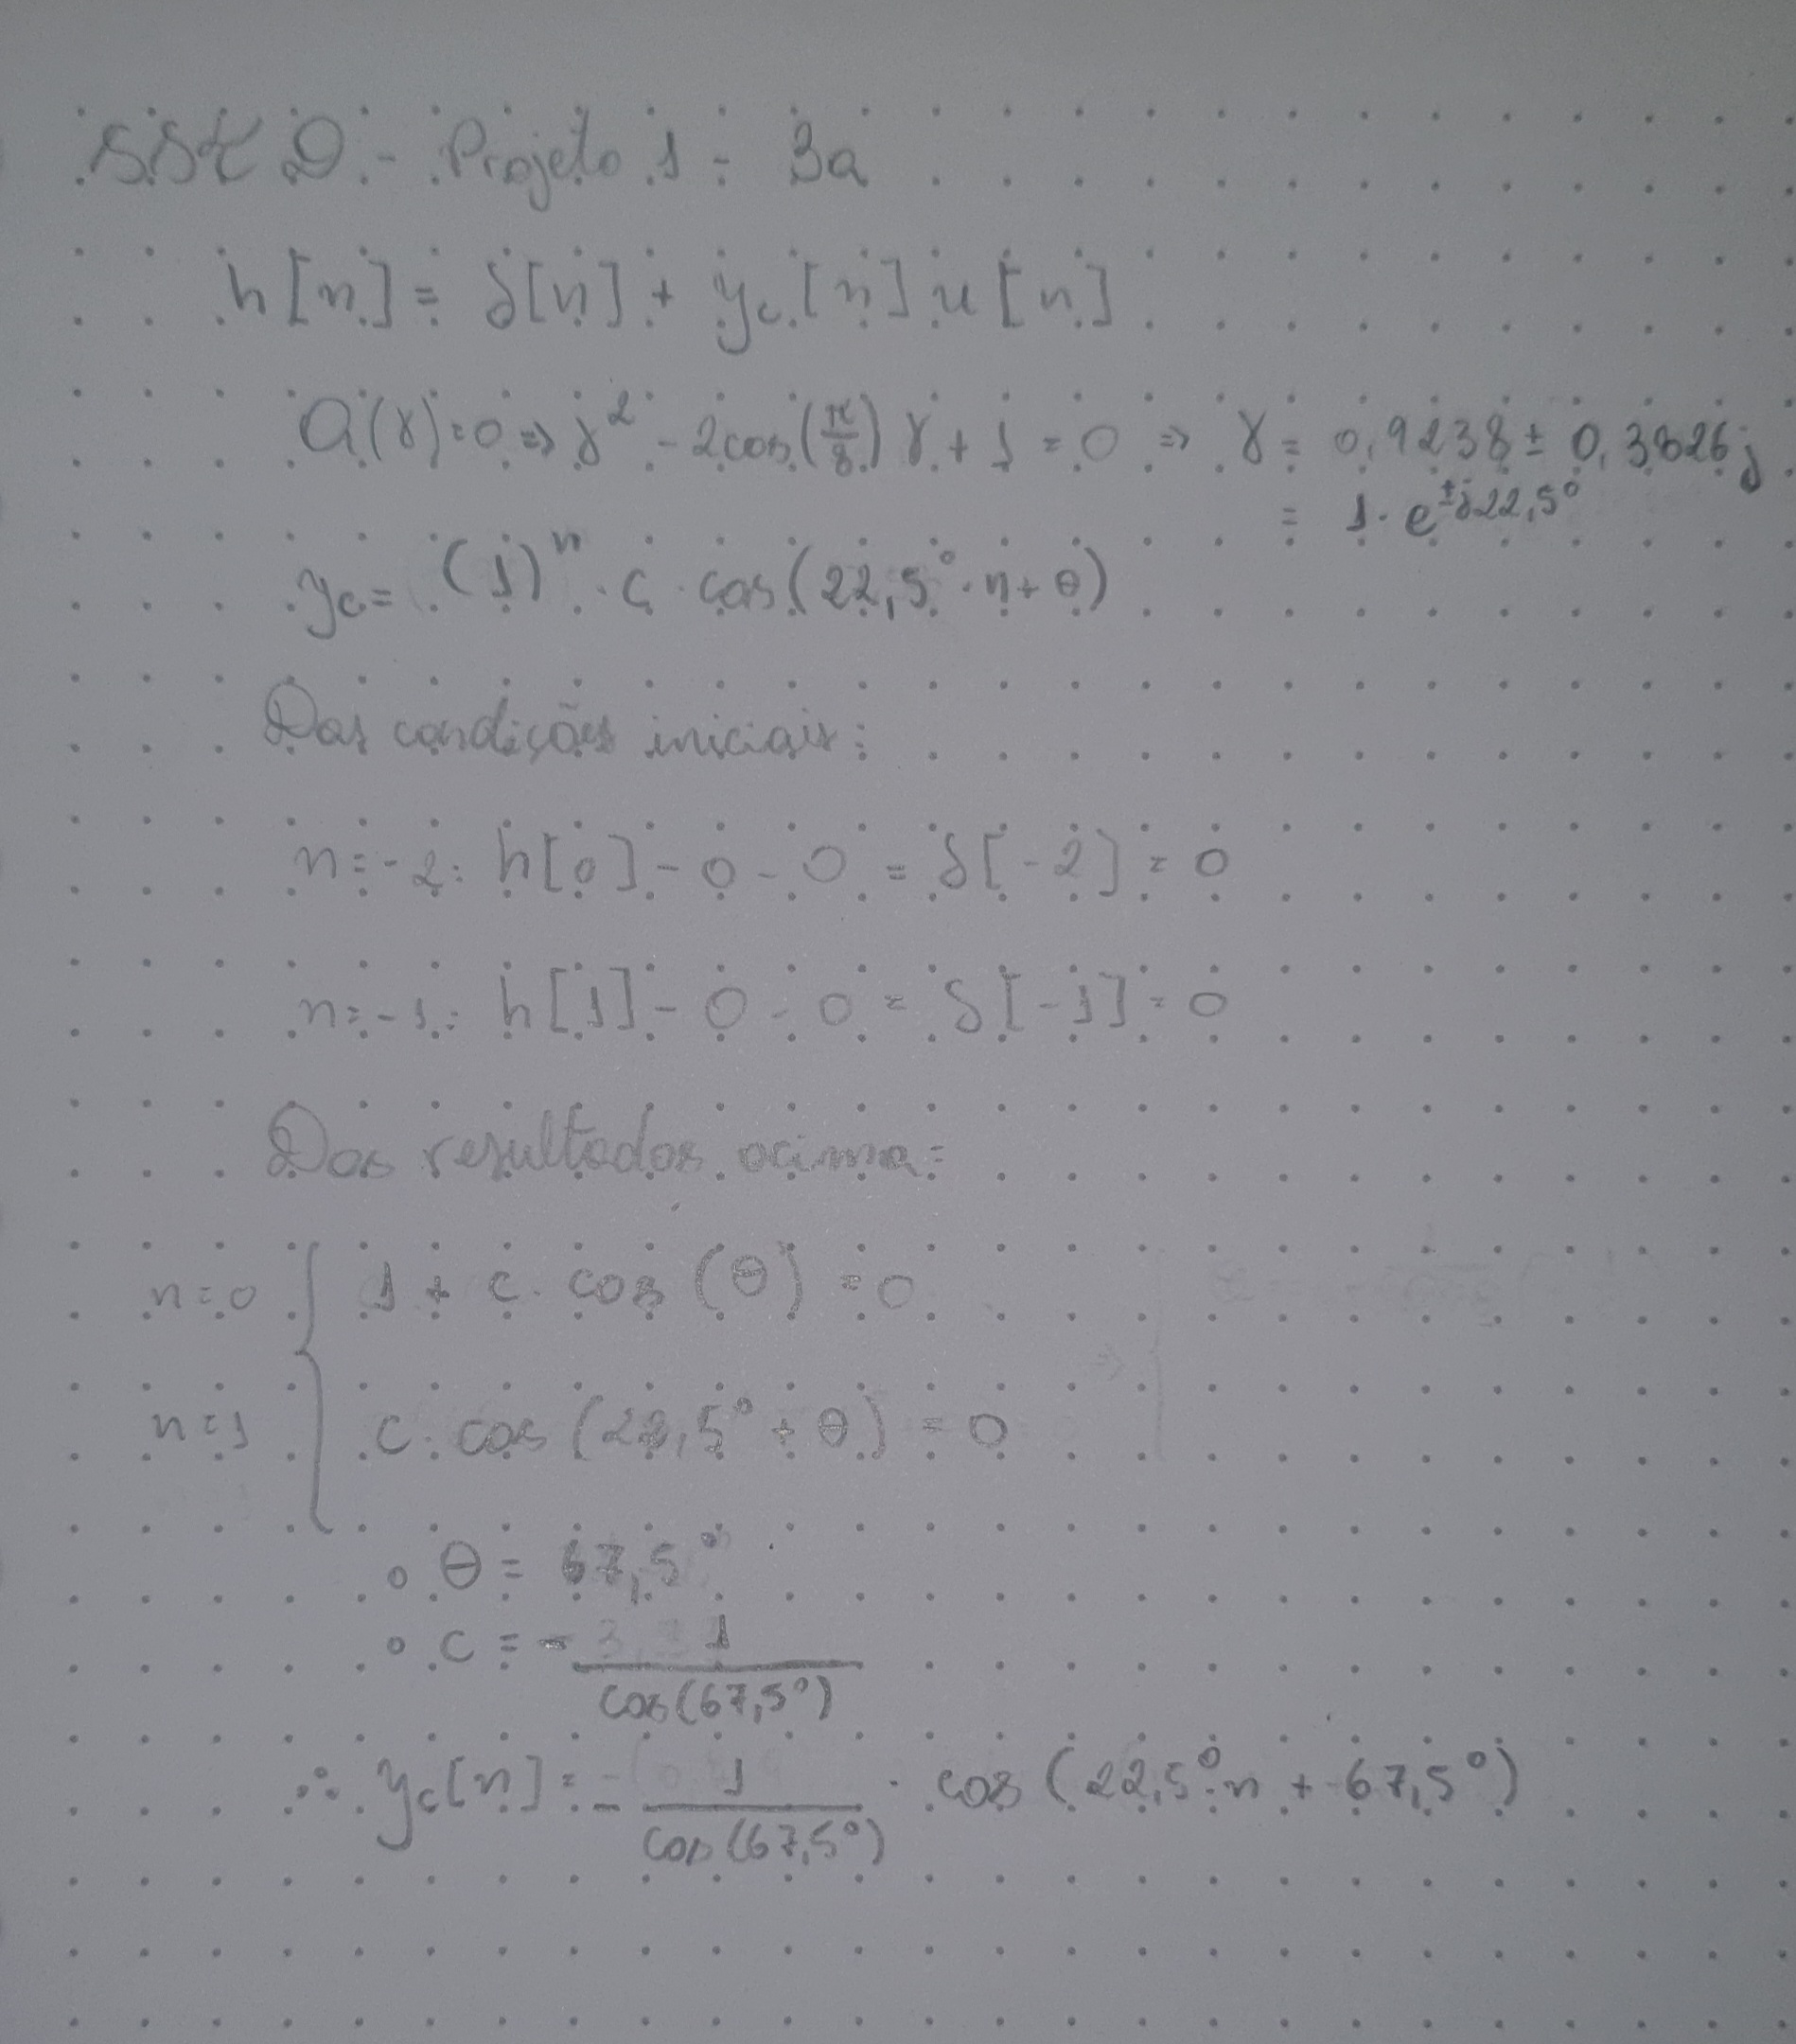 SSt D - Projeto 1 - 3a
h[n] = δ[n] + yc[n]u[n]
Q(γ)=0 => γ² - 2cos(π/8)γ + 1 = 0 => γ = 0,9238 ± 0,3826j
= 1·e^±j22,5°
yc = (1)^n · c · cos(22,5°·n + θ)
Das condições iniciais:
n=-2: h[0] - 0 - 0 = δ[-2] = 0
n=-1: h[1] - 0 - 0 = δ[-1] = 0
Dos resultados acima:
n=0 { 1 + c · cos(θ) = 0
n=1 { c · cos(22,5° + θ) = 0
∘ θ = 67,5°
∘ c = - 1/cos(67,5°)
∴ yc[n] = - 1/cos(67,5°) · cos(22,5°·n + 67,5°)